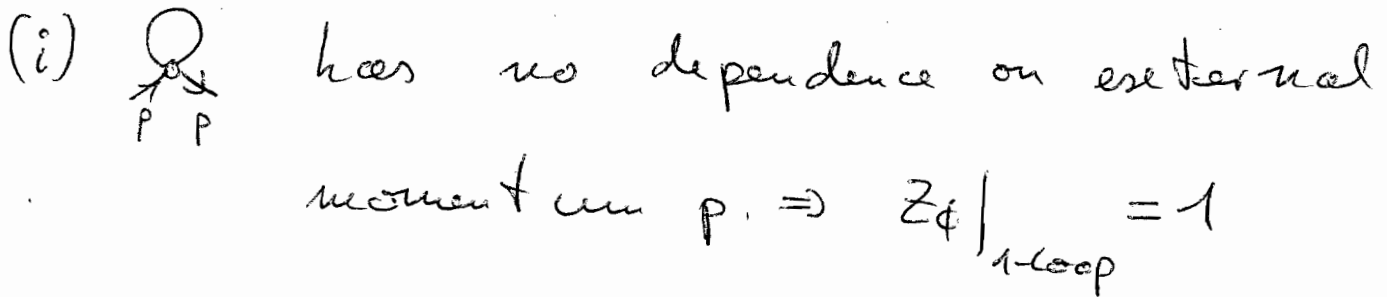 (i) has no dependence on external
p p
momentum p. ⇒ Z_ϕ|_{1-loop} = 1